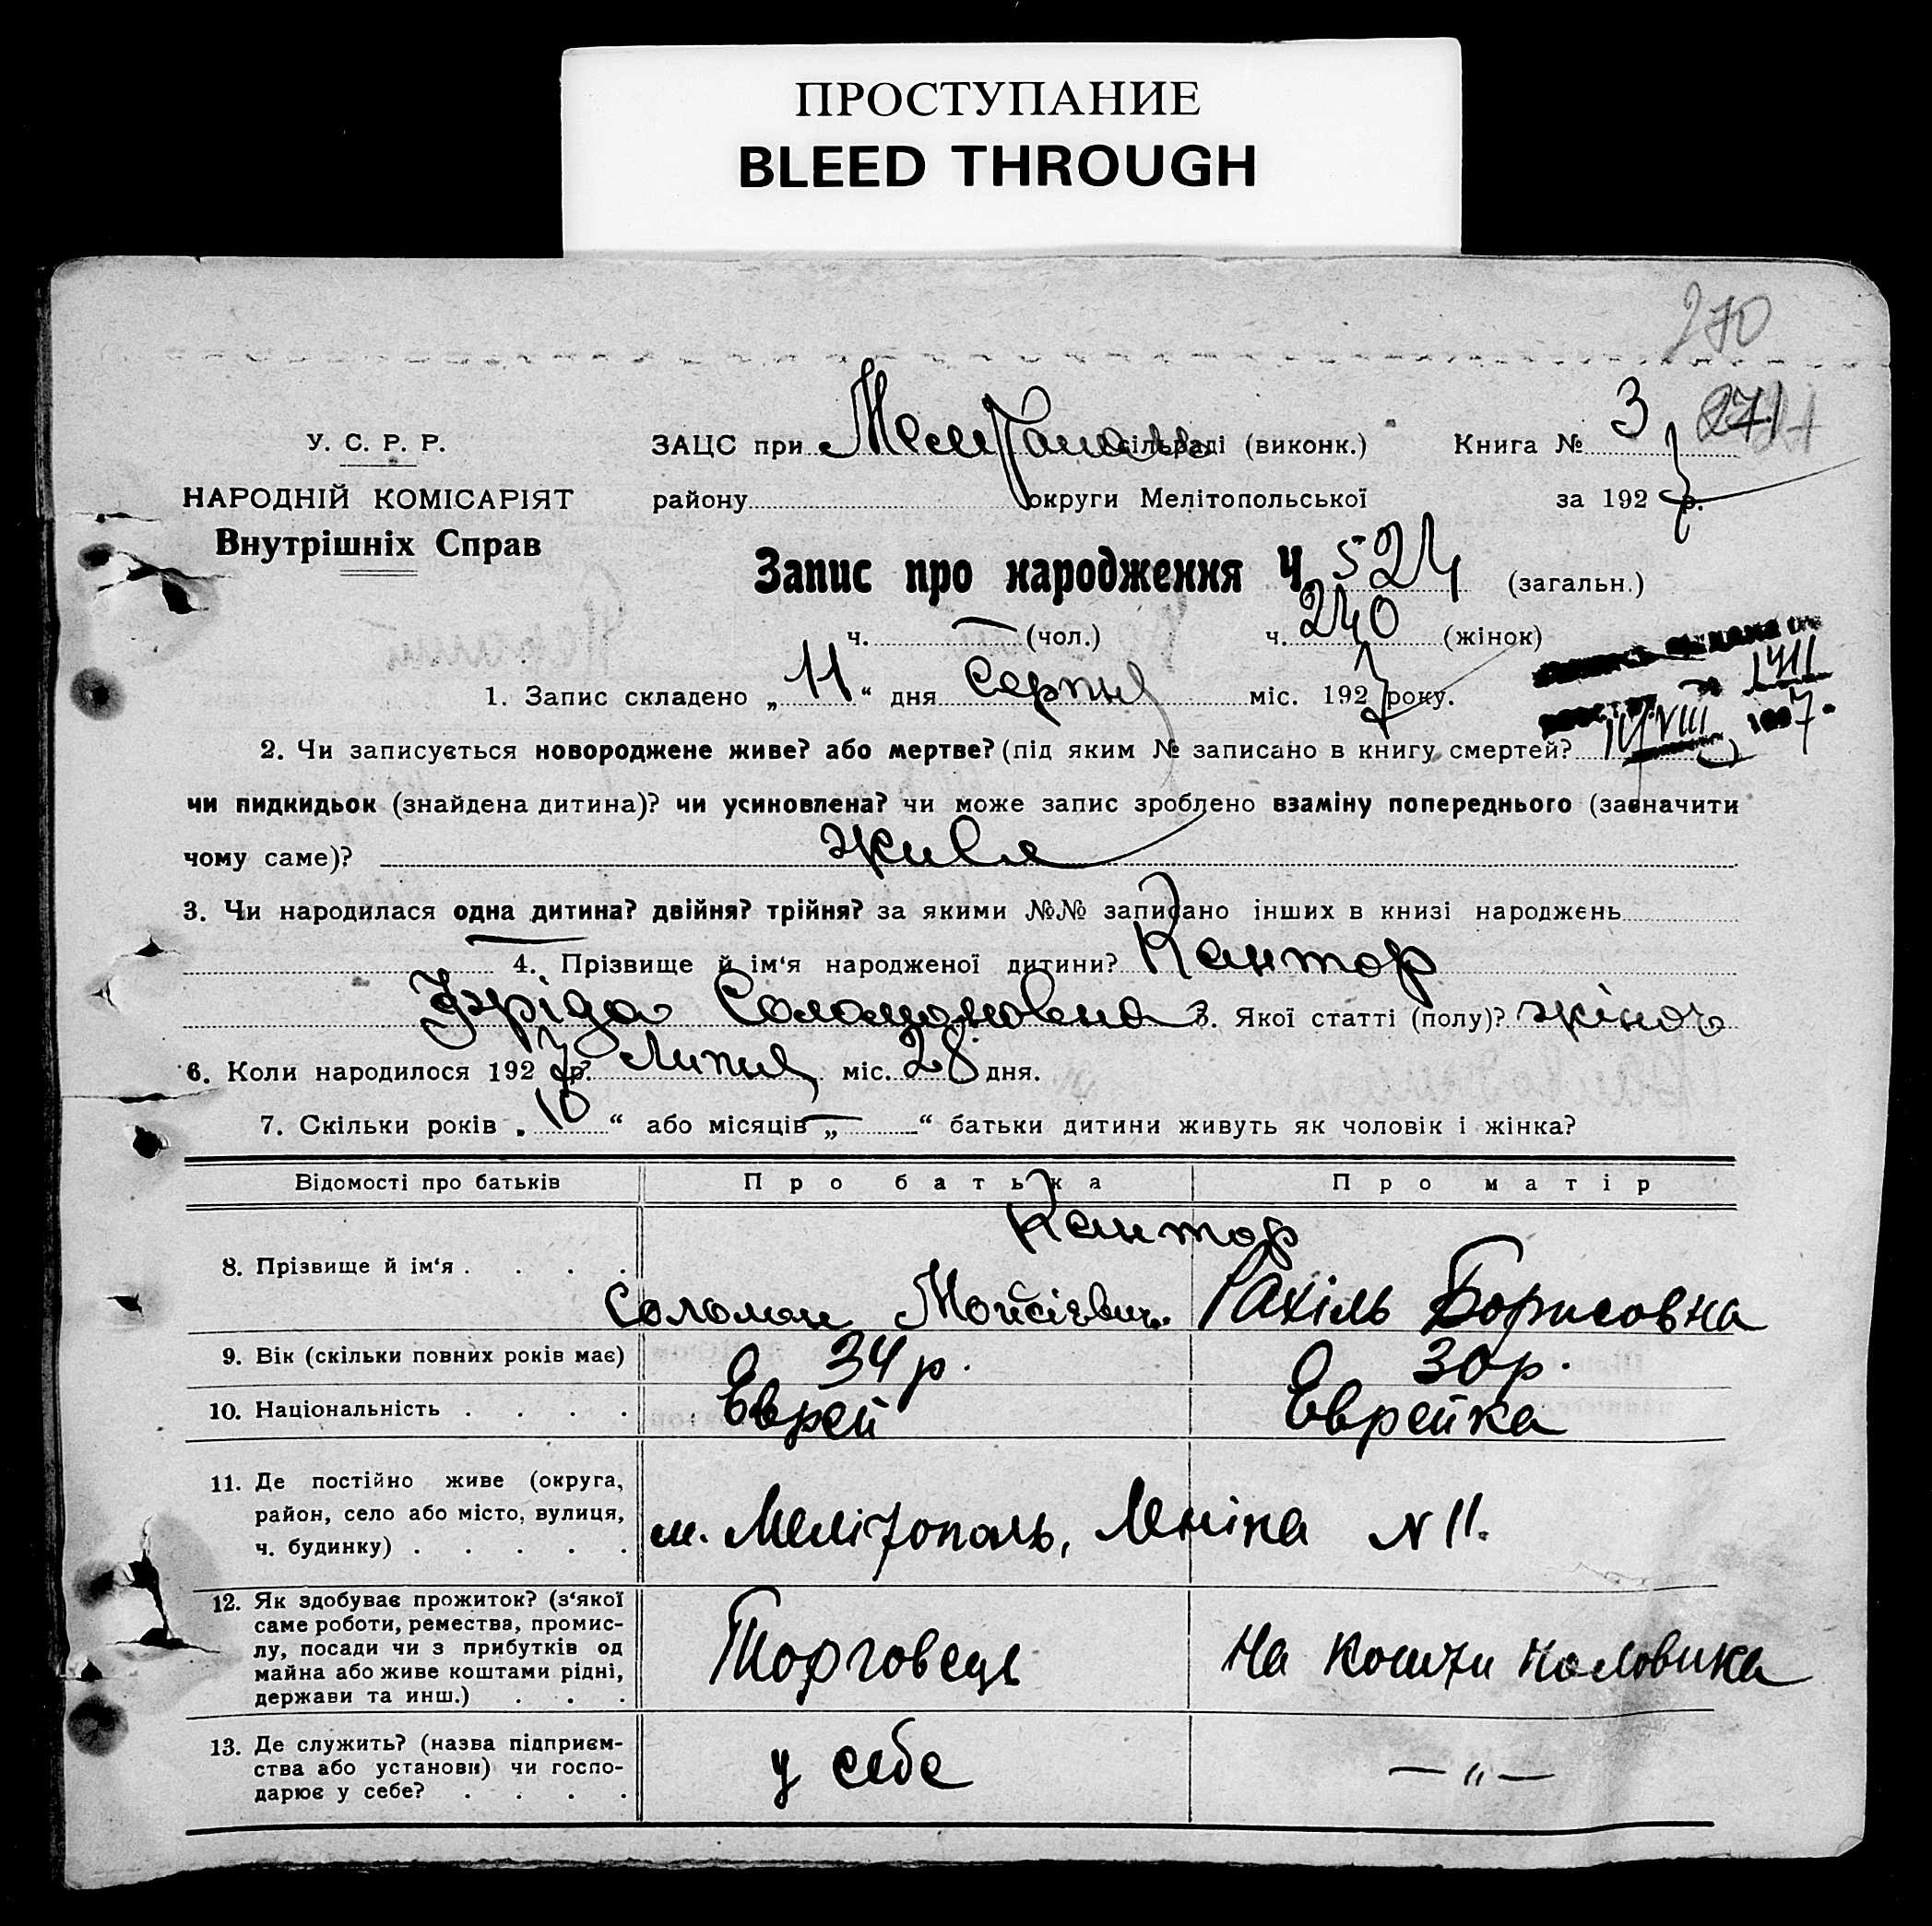 ПРОСТУПАНИЕ
BLEED THROUGH
270
У. С. Р. Р.
НАРОДНІЙ КОМІСАРІЯТ
Внутрішніх Справ
ЗАЦС при сільраді (виконк.) Книга № 3 271
району округи Мелітопольської за 1927 р.
Запис про народження Ч. 524 (загальн.)
ч. — (чол.) ч. 240 (жінок)
1. Запис складено „ 11 “ дня Серпня міс. 1927 року.
1711
14/VIII 7.
2. Чи записується новороджене живе? або мертве? (під яким № записано в книгу смертей?
чи пидкидьок (знайдена дитина)? чи усиновлена? чи може запис зроблено взаміну попереднього (зазначити
чому саме)? живе
3. Чи народилася одна дитина? двійня? трійня? за якими №№ записано інших в книзі народжень
4. Прізвище й ім‘я народженої дитини? Кантор
Фріда Соломоновна 3. Якої статті (полу)? жіноч
6. Коли народилося 1927 р? Липня міс. 28 дня.
7. Скільки років „ 10 “ або місяців „ — “ батьки дитини живуть як чоловік і жінка?
Відомості про батьків Про батька Про матір
Кантор
8. Прізвище й ім‘я . . . . Соломон Мойсієвич. Рахіль Борисовна
9. Вік (скільки повних років має) 34 р. 30 р.
10. Національність . . . . Еврей Еврейка
11. Де постійно живе (округа,
район, село або місто, вулиця,
ч. будинку) . . . . . м. Мелітополь, Леніна N 11.
12. Як здобуває прожиток? (з‘якої
саме роботи, ремества, промис-
лу, посади чи з прибутків од
майна або живе коштами рідні,
держави та инш.) . . . Торговець На кошти чоловика
13. Де служить? (назва підприєм-
ства або установи) чи госпо-
дарює у себе? . . . . у себе — „ —